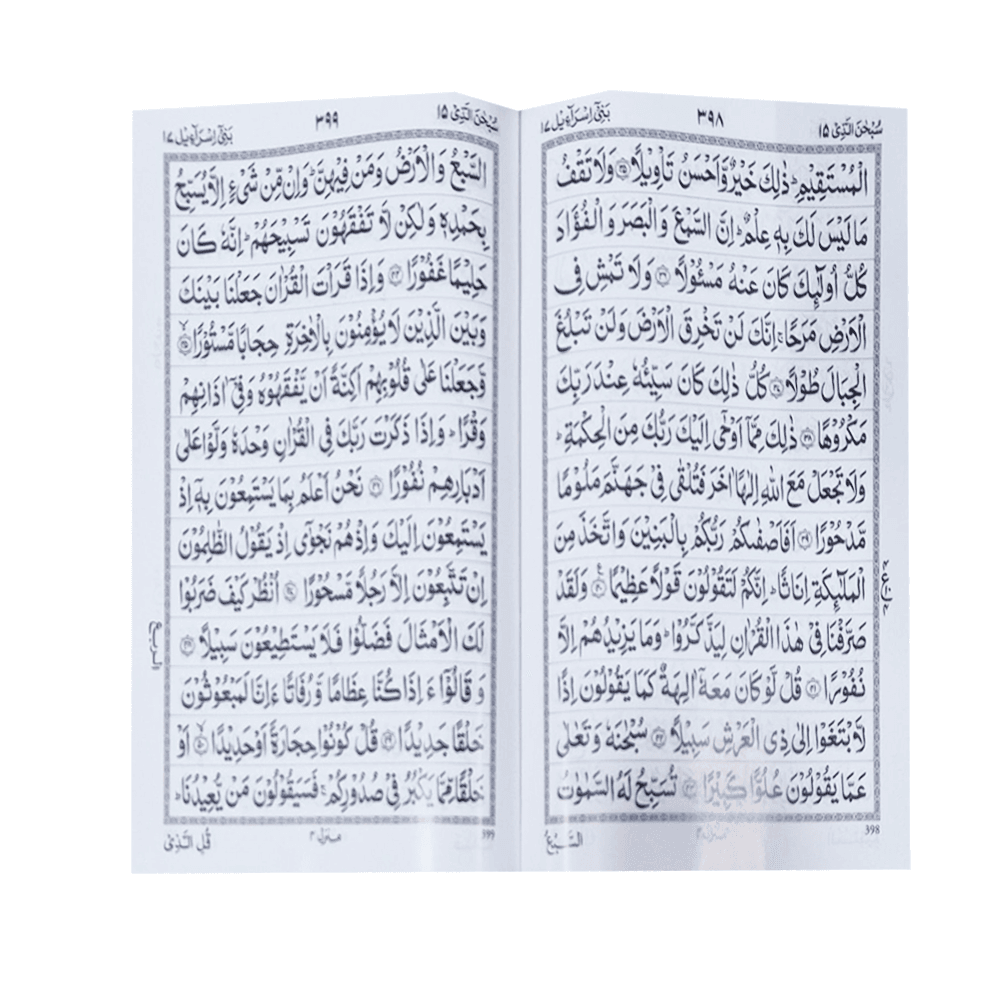 سُبْحٰنَ الَّذِیْ ۱۵
۳۹۸
بَنِیْٓ اِسْرَآءِیْل ۱۷
الْمُسْتَقِیْمِ ؕ ذٰلِكَ خَیْرٌ وَّاَحْسَنُ تَاْوِیْلًا ۝۳۵ وَلَا تَقْفُ
مَا لَیْسَ لَكَ بِهٖ عِلْمٌ ؕ اِنَّ السَّمْعَ وَالْبَصَرَ وَالْفُؤَادَ
كُلُّ اُولٰٓئِكَ كَانَ عَنْهُ مَسْـُٔوْلًا ۝۳۶ وَلَا تَمْشِ فِی
الْاَرْضِ مَرَحًا ۚ اِنَّكَ لَنْ تَخْرِقَ الْاَرْضَ وَلَنْ تَبْلُغَ
الْجِبَالَ طُوْلًا ۝۳۷ كُلُّ ذٰلِكَ كَانَ سَیِّئُهٗ عِنْدَ رَبِّكَ
مَكْرُوْهًا ۝۳۸ ذٰلِكَ مِمَّاۤ اَوْحٰۤی اِلَیْكَ رَبُّكَ مِنَ الْحِكْمَةِ ؕ
وَلَا تَجْعَلْ مَعَ اللّٰهِ اِلٰهًا اٰخَرَ فَتُلْقٰی فِیْ جَهَنَّمَ مَلُوْمًا
مَّدْحُوْرًا ۝۳۹ اَفَاَصْفٰىكُمْ رَبُّكُمْ بِالْبَنِیْنَ وَاتَّخَذَ مِنَ
الْمَلٰٓئِكَةِ اِنَاثًا ؕ اِنَّكُمْ لَتَقُوْلُوْنَ قَوْلًا عَظِیْمًا ۝۴۰ وَلَقَدْ
صَرَّفْنَا فِیْ هٰذَا الْقُرْاٰنِ لِیَذَّكَّرُوْا ؕ وَمَا یَزِیْدُهُمْ اِلَّا
نُفُوْرًا ۝۴۱ قُلْ لَّوْ كَانَ مَعَهٗۤ اٰلِهَةٌ كَمَا یَقُوْلُوْنَ اِذًا
لَّابْتَغَوْا اِلٰی ذِی الْعَرْشِ سَبِیْلًا ۝۴۲ سُبْحٰنَهٗ وَتَعٰلٰی
عَمَّا یَقُوْلُوْنَ عُلُوًّا كَبِیْرًا ۝۴۳ تُسَبِّحُ لَهُ السَّمٰوٰتُ
398
منزل ۴
السَّبْعُ
سُبْحٰنَ الَّذِیْ ۱۵
۳۹۹
بَنِیْٓ اِسْرَآءِیْل ۱۷
السَّبْعُ وَالْاَرْضُ وَمَنْ فِیْهِنَّ ؕ وَاِنْ مِّنْ شَیْءٍ اِلَّا یُسَبِّحُ
بِحَمْدِهٖ وَلٰكِنْ لَّا تَفْقَهُوْنَ تَسْبِیْحَهُمْ ؕ اِنَّهٗ كَانَ
حَلِیْمًا غَفُوْرًا ۝۴۴ وَاِذَا قَرَاْتَ الْقُرْاٰنَ جَعَلْنَا بَیْنَكَ
وَبَیْنَ الَّذِیْنَ لَا یُؤْمِنُوْنَ بِالْاٰخِرَةِ حِجَابًا مَّسْتُوْرًا ۝۴۵
وَّجَعَلْنَا عَلٰی قُلُوْبِهِمْ اَكِنَّةً اَنْ یَّفْقَهُوْهُ وَفِیْۤ اٰذَانِهِمْ
وَقْرًا ؕ وَاِذَا ذَكَرْتَ رَبَّكَ فِی الْقُرْاٰنِ وَحْدَهٗ وَلَّوْا عَلٰۤی
اَدْبَارِهِمْ نُفُوْرًا ۝۴۶ نَحْنُ اَعْلَمُ بِمَا یَسْتَمِعُوْنَ بِهٖۤ اِذْ
یَسْتَمِعُوْنَ اِلَیْكَ وَاِذْ هُمْ نَجْوٰۤی اِذْ یَقُوْلُ الظّٰلِمُوْنَ
اِنْ تَتَّبِعُوْنَ اِلَّا رَجُلًا مَّسْحُوْرًا ۝۴۷ اُنْظُرْ كَیْفَ ضَرَبُوْا
لَكَ الْاَمْثَالَ فَضَلُّوْا فَلَا یَسْتَطِیْعُوْنَ سَبِیْلًا ۝۴۸
وَقَالُوْۤا ءَاِذَا كُنَّا عِظَامًا وَّرُفَاتًا ءَاِنَّا لَمَبْعُوْثُوْنَ
خَلْقًا جَدِیْدًا ۝۴۹ قُلْ كُوْنُوْا حِجَارَةً اَوْ حَدِیْدًا ۝۵۰ اَوْ
خَلْقًا مِّمَّا یَكْبُرُ فِیْ صُدُوْرِكُمْ ۚ فَسَیَقُوْلُوْنَ مَنْ یُّعِیْدُنَا ؕ
399
منزل ۴
قُلِ الَّذِیْ